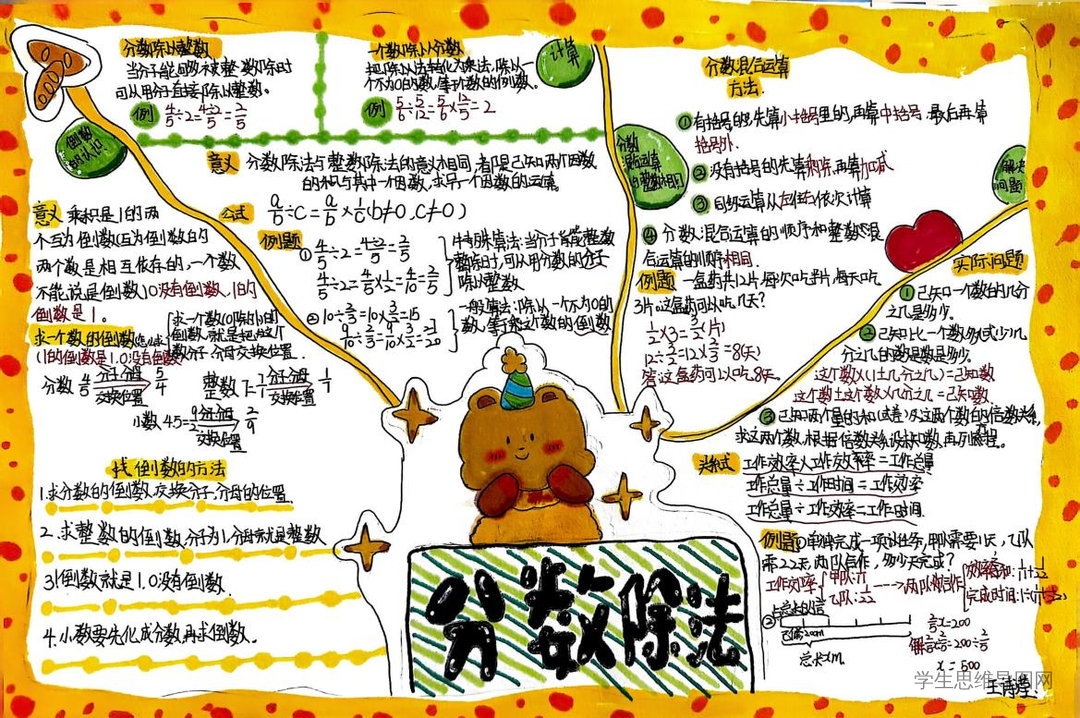 分数除以整数
当分子能够被整数除时
可从用分子直接除以整数。
例 4/5÷2=4÷2/5=2/5
一个数除以分数
把除以法转化为乘法,除以一
个不为0的数,等于个数的倒数。
例 5/6÷5/12=5/6×12/5=2
计算
倒数
的认识
意义 分数除法与整数除法的意义相同,都是已知两个因数
的积与其中一个因数,求另一个因数的运算。
公式 a/b÷c=a/b×1/c(b≠0,c≠0)
例题
①4/5÷2=4÷2/5=2/5
4/5÷2=4/5×1/2=4/10=2/5
特殊算法:当分子能整数
整除时,可从用分数的分子
除以整数
②10÷2/3=10×3/2=15
9/10÷2/3=9/10×3/2=27/20
一般算法:除以一个不为0的
数,等于这个数的倒数
意义 乘积是1的两
个互为倒数(互为倒数的
两个数是相互依存的,一个数
不能说是倒数)0没有倒数,1的
倒数是1。
求一个数的倒数
求一个数(0除外)的
倒数,就是把这个
数分子、分母交换位置.
(1的倒数是1.0没有倒数)
分数 4/5 分子分母 交换位置 5/4
整数 7=7/1 分子分母 交换位置 1/7
小数 4.5=9/2 分子分母 交换位置 2/9
找倒数的方法
1.求分数的倒数,交换分子,分母的位置.
2.求整数的倒数,分子为1,分母就是整数
3.1倒数就是1.0没有倒数.
4.小数要先化成分数,再求倒数。
分数
混合运算
与整数相同
分数混合运算
方法.
①有括号的,先算小括号里的,再算中括号,最后再算
括号外.
②没有括号的先算乘除,再算加减
③同级运算从左往右依次计算
④分数混合运算的顺序和整数混
合运算的顺序相同.
例题 一盒药共12片,每次吃半片,每天吃
3片.这盒药可以吃几天?
1/2×3=3/2(片)
12÷3/2=12×2/3=8(天)
答:这盒药可以吃8天.
解决
问题
实际问题
①已知一个数的几分
之几是多少.
②已知比一个数多(或少)几
分之几的数是数是多少.
这个数×(1±几分之几)=已知数
这个数±这个数×几分之几=已知数
③已知两个量的和(或差)及这两个数的倍数关系,
求这两个数,根据倍数关系设未知数,再列方程.
关系式 工作效率×工作效率=工作总量
工作总量÷工作时间=工作效率
工作总量÷工作效率=工作时间.
例题①单独完成一项任务,甲队需要11天,乙队
需22天,两队合作,多少天完成?
工作效率 甲队:1/11 乙队:1/22 两队合作 效率和:1/11+1/22
②
总长xm.
2/5x=200
解:2/5x÷2/5=200÷2/5
x=500
分数除法
学生思维导图网